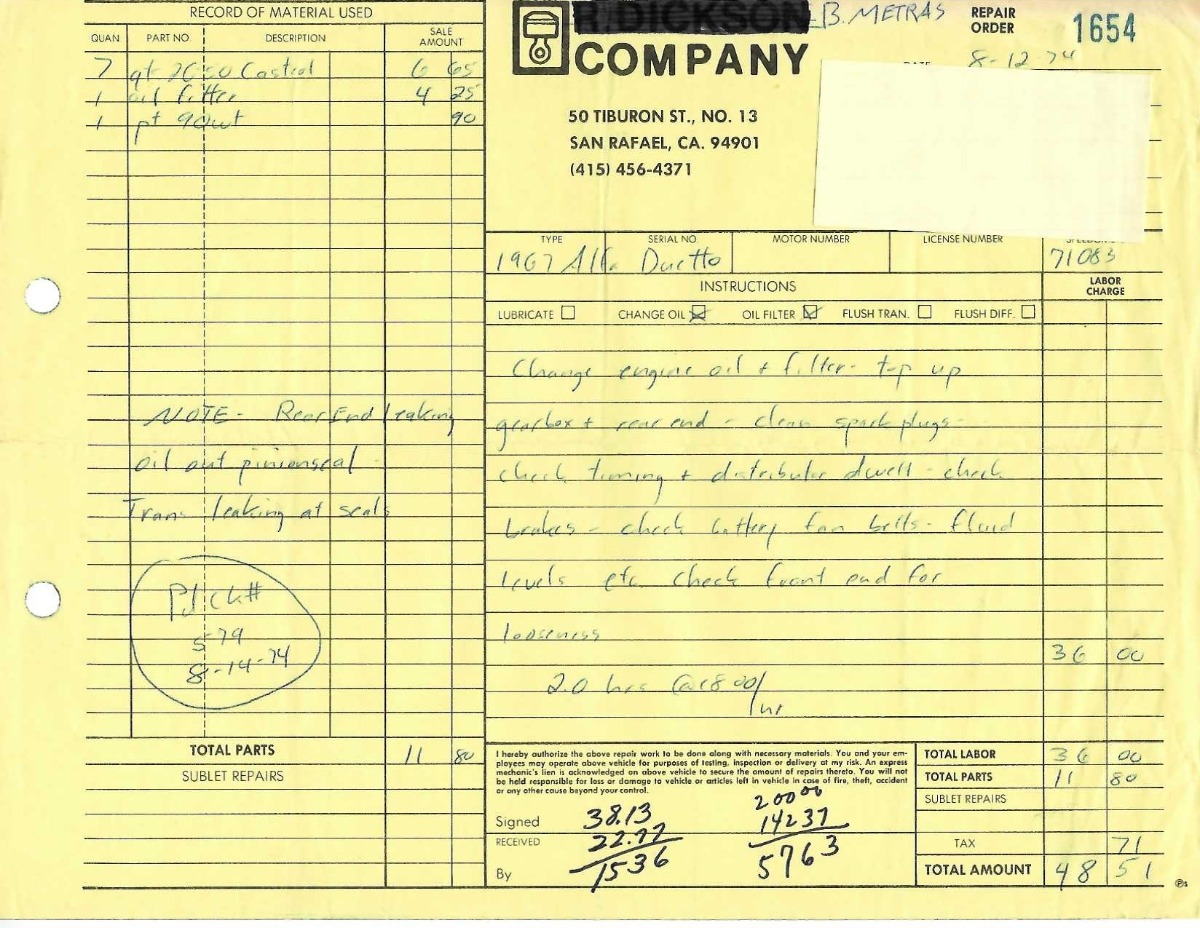 RECORD OF MATERIAL USED
QUAN. PART NO. DESCRIPTION SALE AMOUNT
7 qt 20 50 Castrol 6 65
1 oil filter 4 25
1 pt 90wt 90
NOTE - Rear End leaking
oil out pinion seal -
Trans leaking at seals
Pd ck#
579
8-14-74
TOTAL PARTS 11 80
SUBLET REPAIRS
R. DICKSON B. METRAS
COMPANY
50 TIBURON ST., NO. 13
SAN RAFAEL, CA. 94901
(415) 456-4371
REPAIR ORDER 1654
DATE 8-12-74
TYPE SERIAL NO. MOTOR NUMBER LICENSE NUMBER
1967 Alfa Duetto 71083
INSTRUCTIONS LABOR CHARGE
LUBRICATE CHANGE OIL OIL FILTER FLUSH TRAN. FLUSH DIFF.
Change engine oil + filter - top up
gearbox + rear end - clean spark plugs -
check timing + distributor dwell - check
brakes - check battery fan belts - fluid
levels etc check front end for
looseness
36 00
2.0 hrs @18 00/
hr
I hereby authorize the above repair work to be done along with necessary materials. You and your em-
ployees may operate above vehicle for purposes of testing, inspection or delivery at my risk. An express
mechanic's lien is acknowledged on above vehicle to secure the amount of repairs thereto. You will not
be held responsible for loss or damage to vehicle or articles left in vehicle in case of fire, theft, accident
or any other cause beyond your control.
Signed 38.13 20000
RECEIVED 22.77 14237
By 1536 5763
TOTAL LABOR 36 00
TOTAL PARTS 11 80
SUBLET REPAIRS
TAX 71
TOTAL AMOUNT 48 51